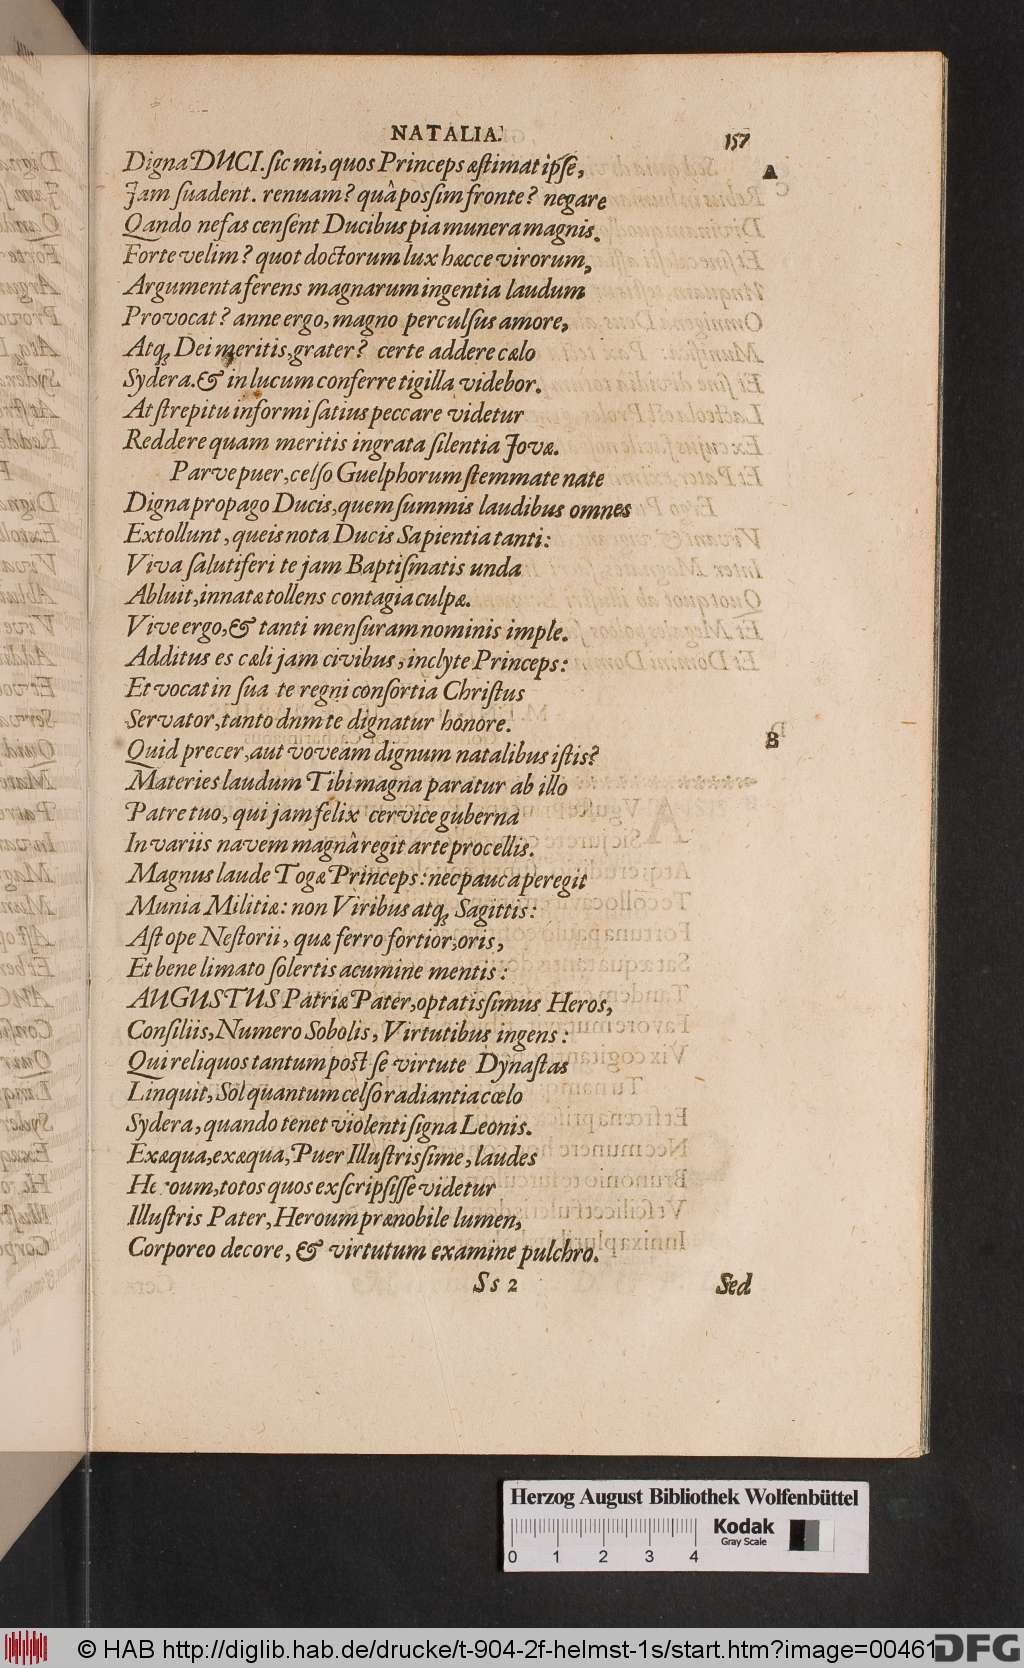 NATALIA. 157
Digna DUCI. sic mi, quos Princeps æstimat ipse, A
Jam suadent. renuam? quâ possim fronte? negare
Qando nefas censent Ducibus pia munera magnis.
Forte velim? quot doctorum lux hæcce virorum,
Argumenta ferens magnarum ingentia laudum
Provocat? anne ergo, magno perculsus amore,
Atq; Dei meritis, grater? certe addere cælo
Sydera. & in lucum conferre tigilla videbor.
At strepitu informi satius peccare videtur
Reddere quam meritis ingrata silentia Jovæ.
Parve puer, celso Guelphorum stemmate nate
Digna propago Ducis, quem summis laudibus omnes
Extollunt, queis nota Ducis Sapientia tanti:
Viva salutiferi te jam Baptismatis unda
Abluit, innatæ tollens contagia culpæ.
Vive ergo, & tanti mensuram nominis imple.
Additus es cæli jam civibus, inclyte Princeps:
Et vocat in sua te regni consortia Christus
Servator, tanto dum te dignatur honore.
Quid precer, aut voveam dignum natalibus istis? B
Materies laudum Tibi magna paratur ab illo
Patre tuo, qui jam felix cervice guberna
In variis navem magnâ regit arte procellis.
Magnus laude Togæ Princeps: nec pauca peregit
Munia Militiæ: non Viribus atq; Sagittis:
Ast ope Nestorii, quæ ferro fortior, oris,
Et bene limato solertis acumine mentis:
AUGUSTUS Patriæ Pater, optatissimus Heros,
Consiliis, Numero Sobolis, Virtutibus ingens:
Qui reliquos tantum post se virtute Dynastas
Linquit, Sol quantum celso radiantia cœlo
Sydera, quando tenet violenti signa Leonis.
Exæqua, exæqua, Puer Illustrissime, laudes
Heroum, totos quos exscripsisse videtur
Illustris Pater, Heroum prænobile lumen,
Corporeo decore, & virtutum examine pulchro.
Ss 2 Sed
Herzog August Bibliothek Wolfenbüttel
0 1 2 3 4 Kodak Gray Scale
© HAB http://diglib.hab.de/drucke/t-904-2f-helmst-1s/start.htm?image=00461 DFG